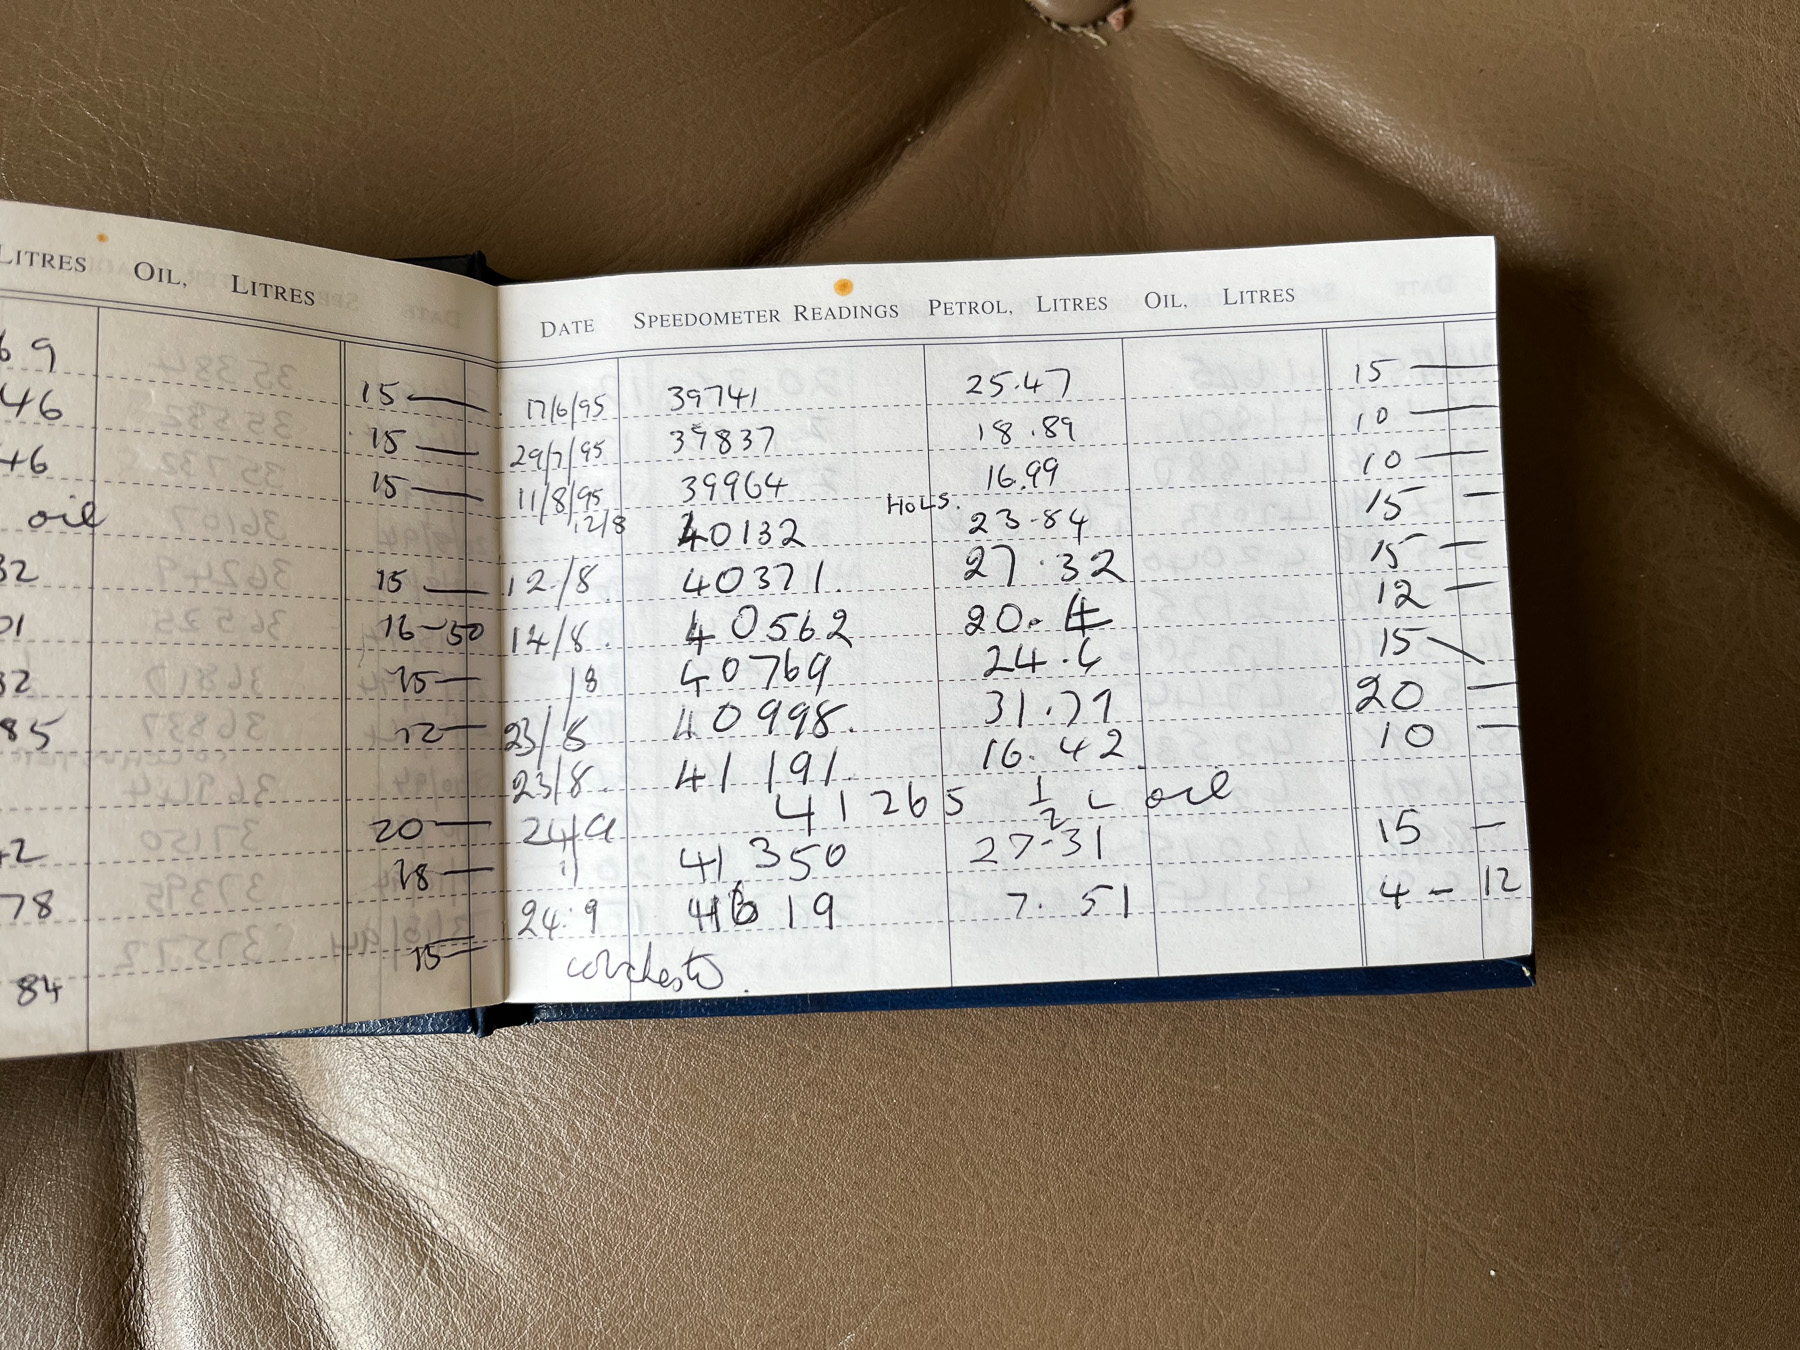 LITRES OIL, LITRES
69
46 15 —
46 15 —
oil 15 —
32 15 —
01 16 - 50
32 15 —
85 12 —
20 —
42 18 —
78
15 —
84
DATE SPEEDOMETER READINGS PETROL, LITRES OIL, LITRES
17/6/95 39741 25.47 15 —
29/7/95 39837 18.89 10 —
11/8/95 39964 16.99 10 —
12/8 40132 HOLS. 23.84 15 —
12/8 40371. 27.32 15 —
14/8. 40562 20.4 12 —
/8 40769 24.6 15 —
23/8 40998. 31.71 20 —
23/8. 41191. 16.42 10 —
41265 1/2 L oil
24/9 41350 27.31 15 —
24.9 41619 7.51 4 - 12